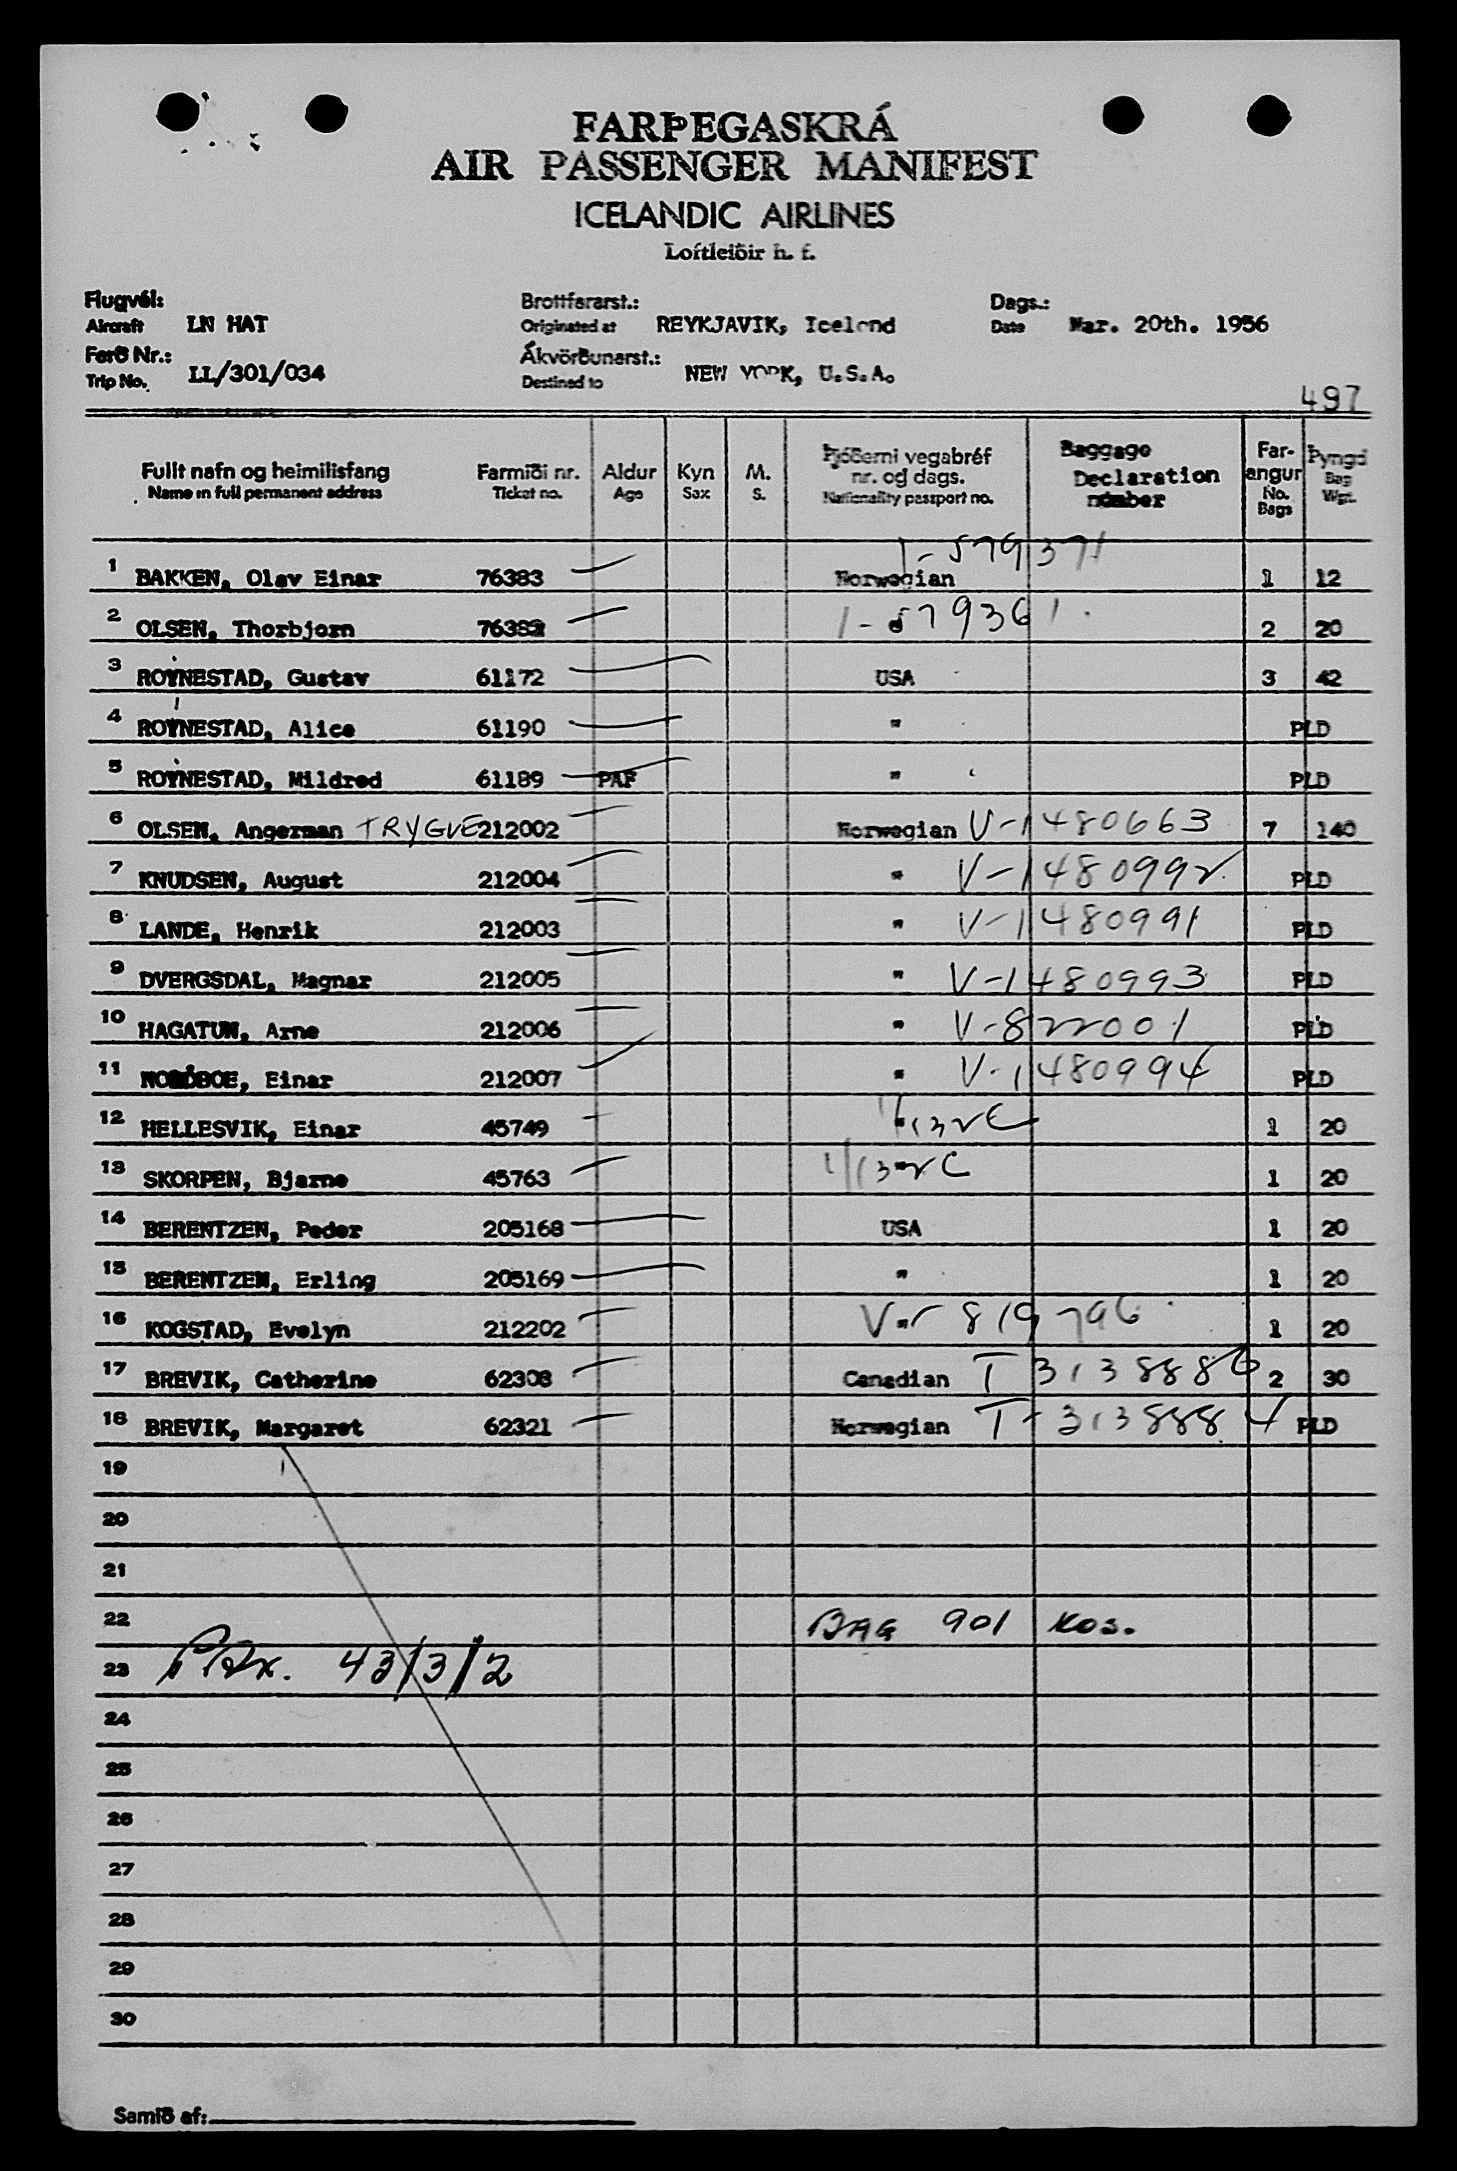 FARÞEGASKRÁ
AIR PASSENGER MANIFEST
ICELANDIC AIRLINES
Loftleiðir h. f.
Flugvél: Brottfararst.: Dags.:
Aircraft LN HAT Originated at REYKJAVIK, Iceland Date Mar. 20th. 1956
Ferð Nr.: Ákvörðunarst.:
Trip No. LL/301/034 Destined to NEW YORK, U.S.A.
497
Fullt nafn og heimilisfang Farmiði nr. Aldur Kyn M. Þjóðerni vegabréf nr. og dags. Baggage Declaration number Far-angur Þyngd
Name in full permanent address Ticket no. Age Sex S. Nationality passport no. No. Bags Bag Wgt.
1 BAKKEN, Olav Einar 76383 Norwegian 1-579371 1 12
2 OLSEN, Thorbjorn 76382 1-579361 2 20
3 ROYNESTAD, Gustav 61172 USA 3 42
4 ROYNESTAD, Alice 61190 " PLD
5 ROYNESTAD, Mildred 61189 PAF " PLD
6 OLSEN, Angerman TRYGVE 212002 Norwegian V-1480663 7 140
7 KNUDSEN, August 212004 " V-1480992 PLD
8 LANDE, Henrik 212003 " V-1480991 PLD
9 DVERGSDAL, Magnar 212005 " V-1480993 PLD
10 HAGATUN, Arne 212006 " V-822001 PLD
11 Einar 212007 " V-1480994 PLD
12 HELLESVIK, Einar 45749 " 1 20
13 SKORPEN, Bjarne 45763 " 1 20
14 BERENTZEN, Peder 205168 USA 1 20
15 BERENTZEN, Erling 205169 " 1 20
16 KOGSTAD, Evelyn 212202 " 819796 1 20
17 BREVIK, Catherine 62308 Canadian T 3138886 2 30
18 BREVIK, Margaret 62321 Norwegian T-3138884 PLD
19
20
21
22 BAG 901 Kos.
23 PAx. 43/3/2
24
25
26
27
28
29
30
Samið af: